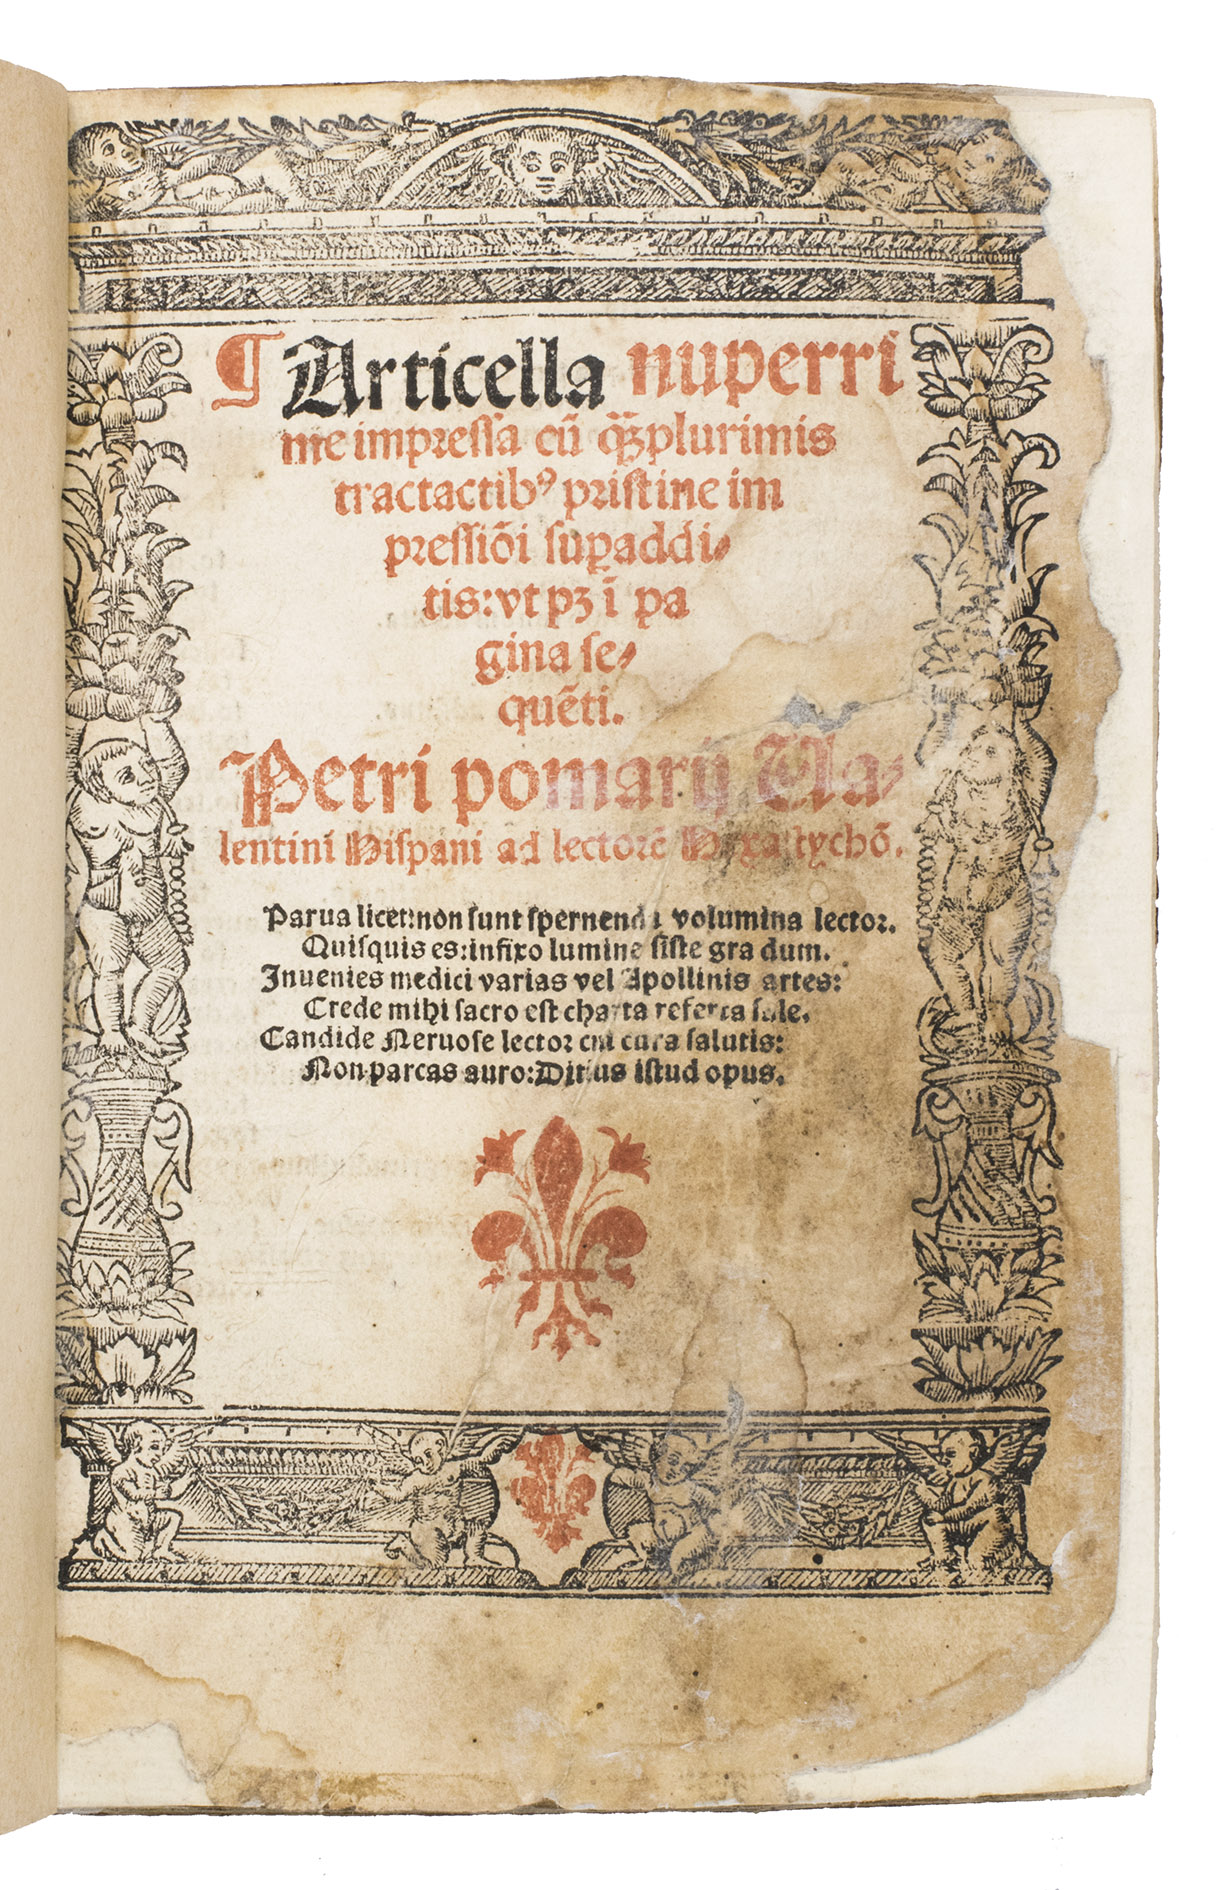 ¶ Articella nuperri
me impressa cū qꝫplurimis
tractactibꝰ pristine im
pressiōi suꝑaddi⸗
tis: vt pꝫ ī pa
gina se⸗
quēti.
Petri pomarij Ua⸗
lentini Hispani ad lectorē Hexastychō.
Parua licet: non sunt spernenda volumina lector.
Quisquis es: infixo lumine siste gradum.
Inuenies medici varias vel Apollinis artes:
Crede mihi sacro est charta referta sale.
Candide Neruose lector cui cura salutis:
Non parcas auro: Ditius istud opus.